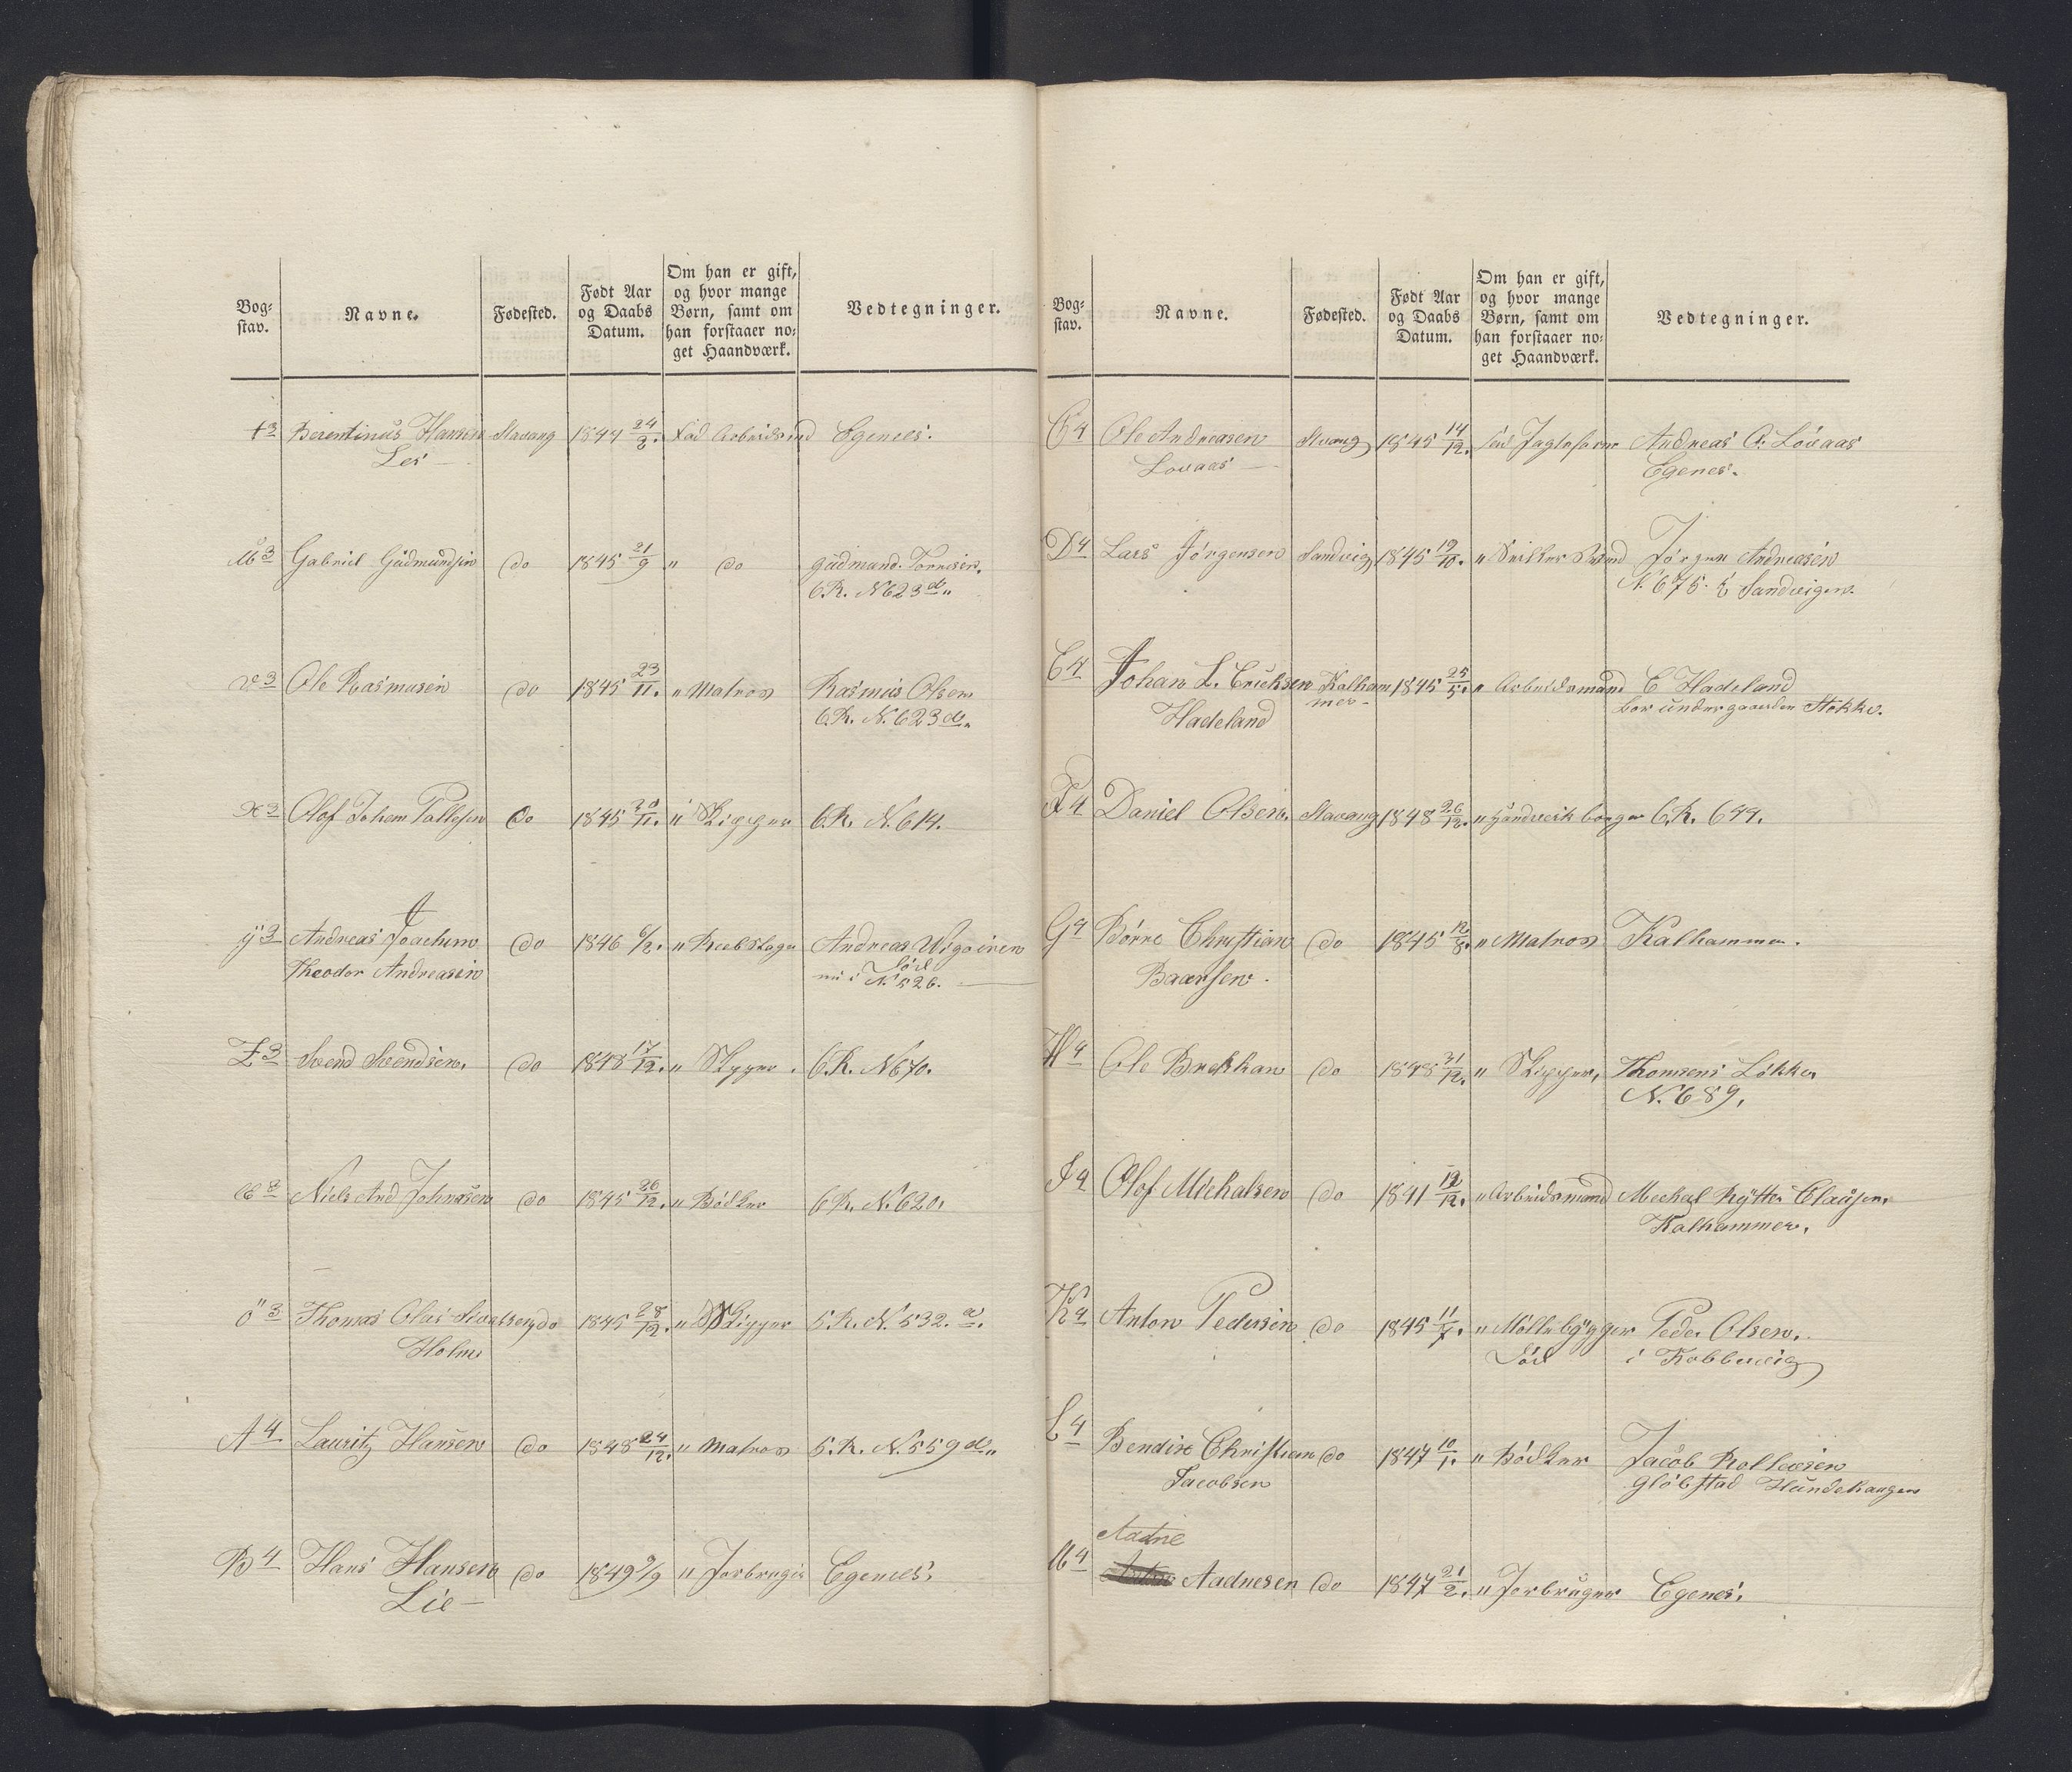 Bog-
stav.
Navne.
Fødested.
Født Aar
og Daabs
Datum.
Om han er gift,
og hvor mange
Børn, samt om
han forstaaer no-
get Haandværk.
Vedtegninger.
t3 Berentinus Hansen Stavang 1844 24/3. Fad Arbeidsmd Egenes.
Lei
U3 Gabriel Gudmundsen do 1845 21/9 " do Gudmand Tornesen.
6.R. N 623 d "
v3 Ole Rasmusen do 1845 23/11. " Matros Rasmus Olsen
6.R. N. 623 d "
X3 Olof Johem Pallesen do 1845 30/11. " Skipper 6.R. N. 614.
y3 Andreas Joachim do 1846 6/2. " Reebslager Andreas
Theodor Andreasen nu i N. 526.
Z3 Svend Svendsen. do 1848 17/12. " Skipper. 6.R. N 670.
Æ3 Niels And Johnsen do 1845 26/12. " Bødker 6 R. N. 620.
ö3 Thomas Olai do 1845 28/12. " Skipper 5.R. N. 532. a.
Holm
A4 Lauritz Hansen do 1848 24/12. " Matros 5.R. N. 559 d "
B4 Hans Hansen do 1849 9/9 " Jorbruger Egenes.
Lie
Bog-
stav.
Navne.
Fødested.
Født Aar
og Daabs
Datum.
Om han er gift,
og hvor mange
Børn, samt om
han forstaaer no-
get Haandværk.
Vedtegninger.
C4 Ole Andreasen Stvang 1845 14/12. Andreas A. Lövaas
Lovaas Egenes.
D4 Lars Jörgensen Sandvig 1845 19/10. " Snikker Svend Jörgen Andreasen
N. 675. i Sandvigen.
E4 Johan L. Ericksen Kalham 1845 25/5. " Arbeidsmand E Hadeland
mer
Hadeland bor under gaarden Stokke.
F4 Daniel Olsen. Stavang 1848 26/12. " Handverk borger 6.R. 644.
G4 Börre Christian do 1845 12/8. " Matros Kalhammer.
Baarsen.
H4 Ole Brekhan do 1848 31/12. " Skipper, Thomsens Løkke
N. 689.
I4 Olof Michalsen do 1841 12/12. " Arbeidsmand Mechal Rytter Clausen.
Kalhammer.
K4 Anton Pedersen do 1845 11/7. " Möllebygger Peder Olsen.
Död i Kobbevig
L4 Bendix Christian do 1847 10/1. " Bödker Jacob Rollevsen
Jacobsen Glöbstad Hundehaugen
Aadne
M4 Aadnesen do 1847 21/2. " Jorbruger Egenes.